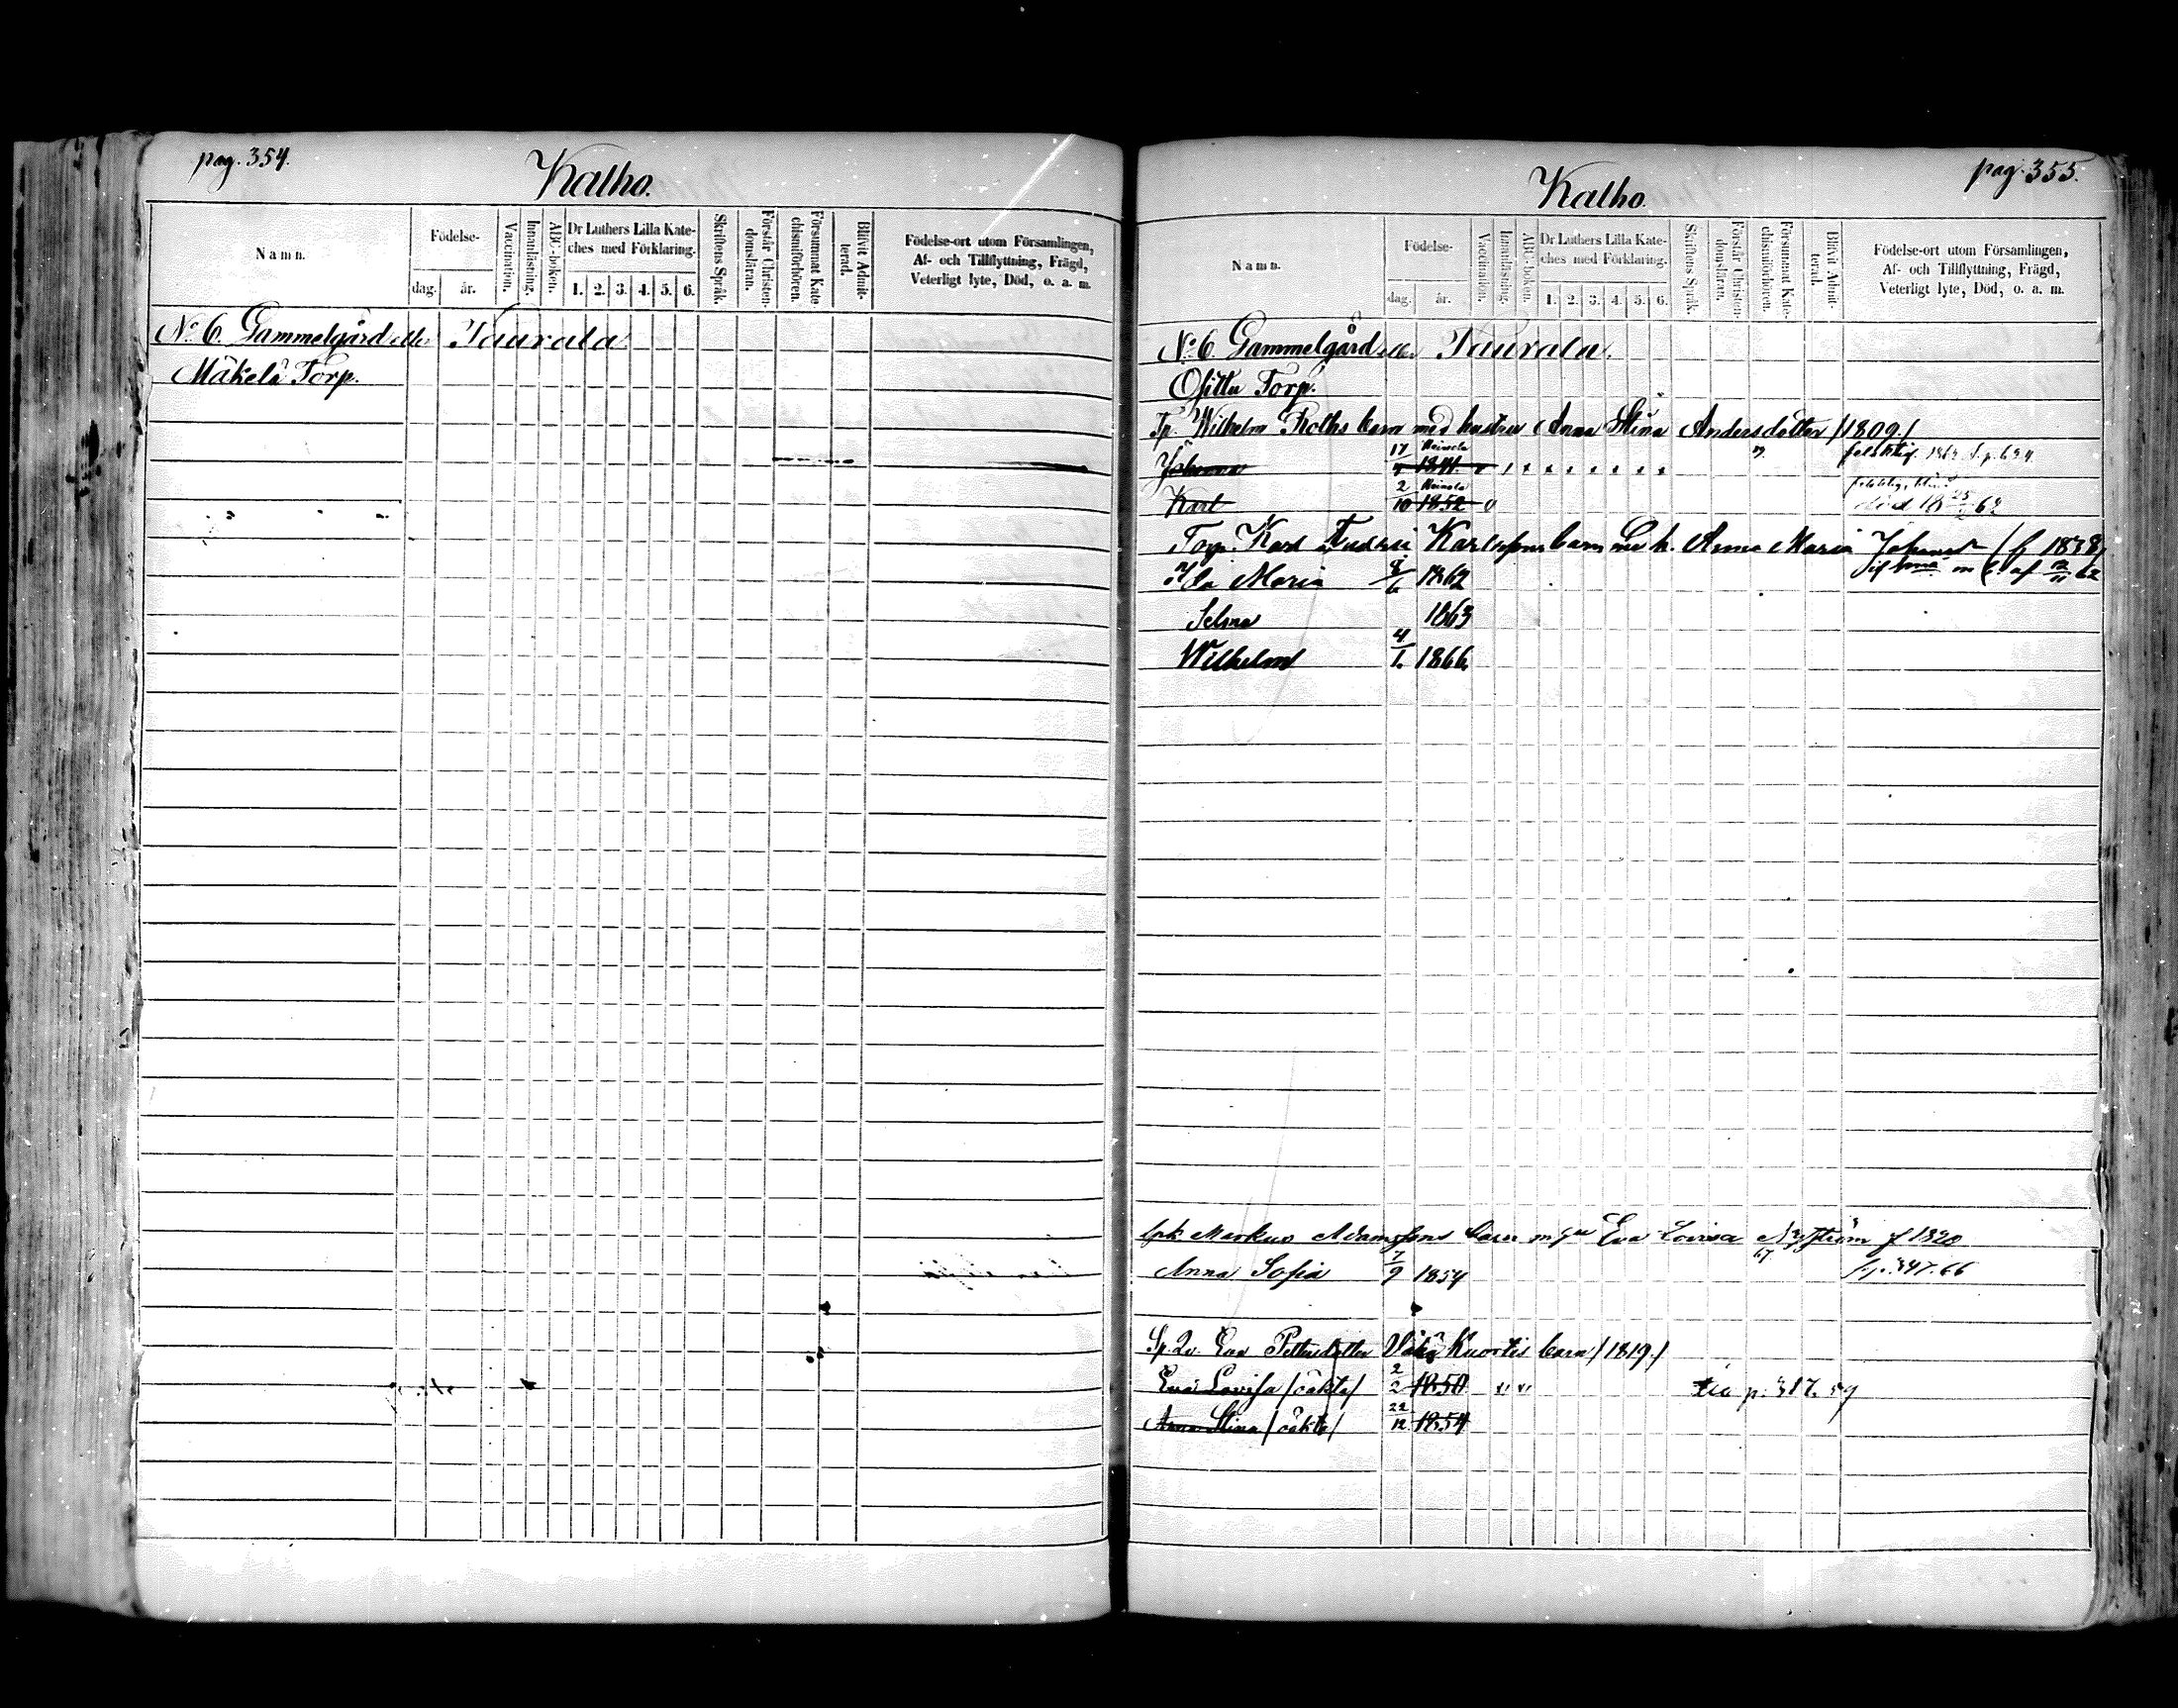 pag. 354.
Kalho.
Namn.
Födelse-
dag.
år.
Vaccination.
Innanläsning.
ABC-boken.
Dr Luthers Lilla Kate-
ches med Förklaring.
1. 2. 3. 4. 5. 6.
Skriftens Språk.
Förstår Christen-
domsläran.
Försummat Kate-
chismiförhören.
Blifvit Admit-
terad.
Födelse-ort utom Församlingen,
Af- och Tillflyttning, Frägd,
Veterligt lyte, Död, o. a. m.
No 6. Gammelgård eller Taurala
Mäkelä Torp.
pag. 355.
Kalho.
Namn.
Födelse-
dag.
år.
Vaccination.
Innanläsning.
ABC-boken.
Dr Luthers Lilla Kate-
ches med Förklaring.
1. 2. 3. 4. 5. 6.
Skriftens Språk.
Förstår Christen-
domsläran.
Försummat Kate-
chismiförhören.
Blifvit Admit-
terad.
Födelse-ort utom Församlingen,
Af- och Tillflyttning, Frägd,
Veterligt lyte, Död, o. a. m.
No 6. Gammelgård eller Taurala.
Torp.
Tp. Wilhelm Roths barn med hustru Anna Stina Andersdotter /1809/
Johanna 17 Heinola 1841
Karl 2/10 Heinola 1852 död 18 25 62
Torp. Karl Karlssons barn med h. Anna Maria (f 1838)
Ida Maria 8/6 1862
Selma 1863
Wilhelm 4/1. 1866
Markus Adamssons barn Eva Lovisa Nyström f 1820
Anna Sofia 7/9 1854 347. 66
Eva Pettersdotter Kuortis barn /1819/
Eva Lovisa /oäkta/ 2/2 1850 p. 317. 59
Anna Stina /oäkta/ 22/12 1854